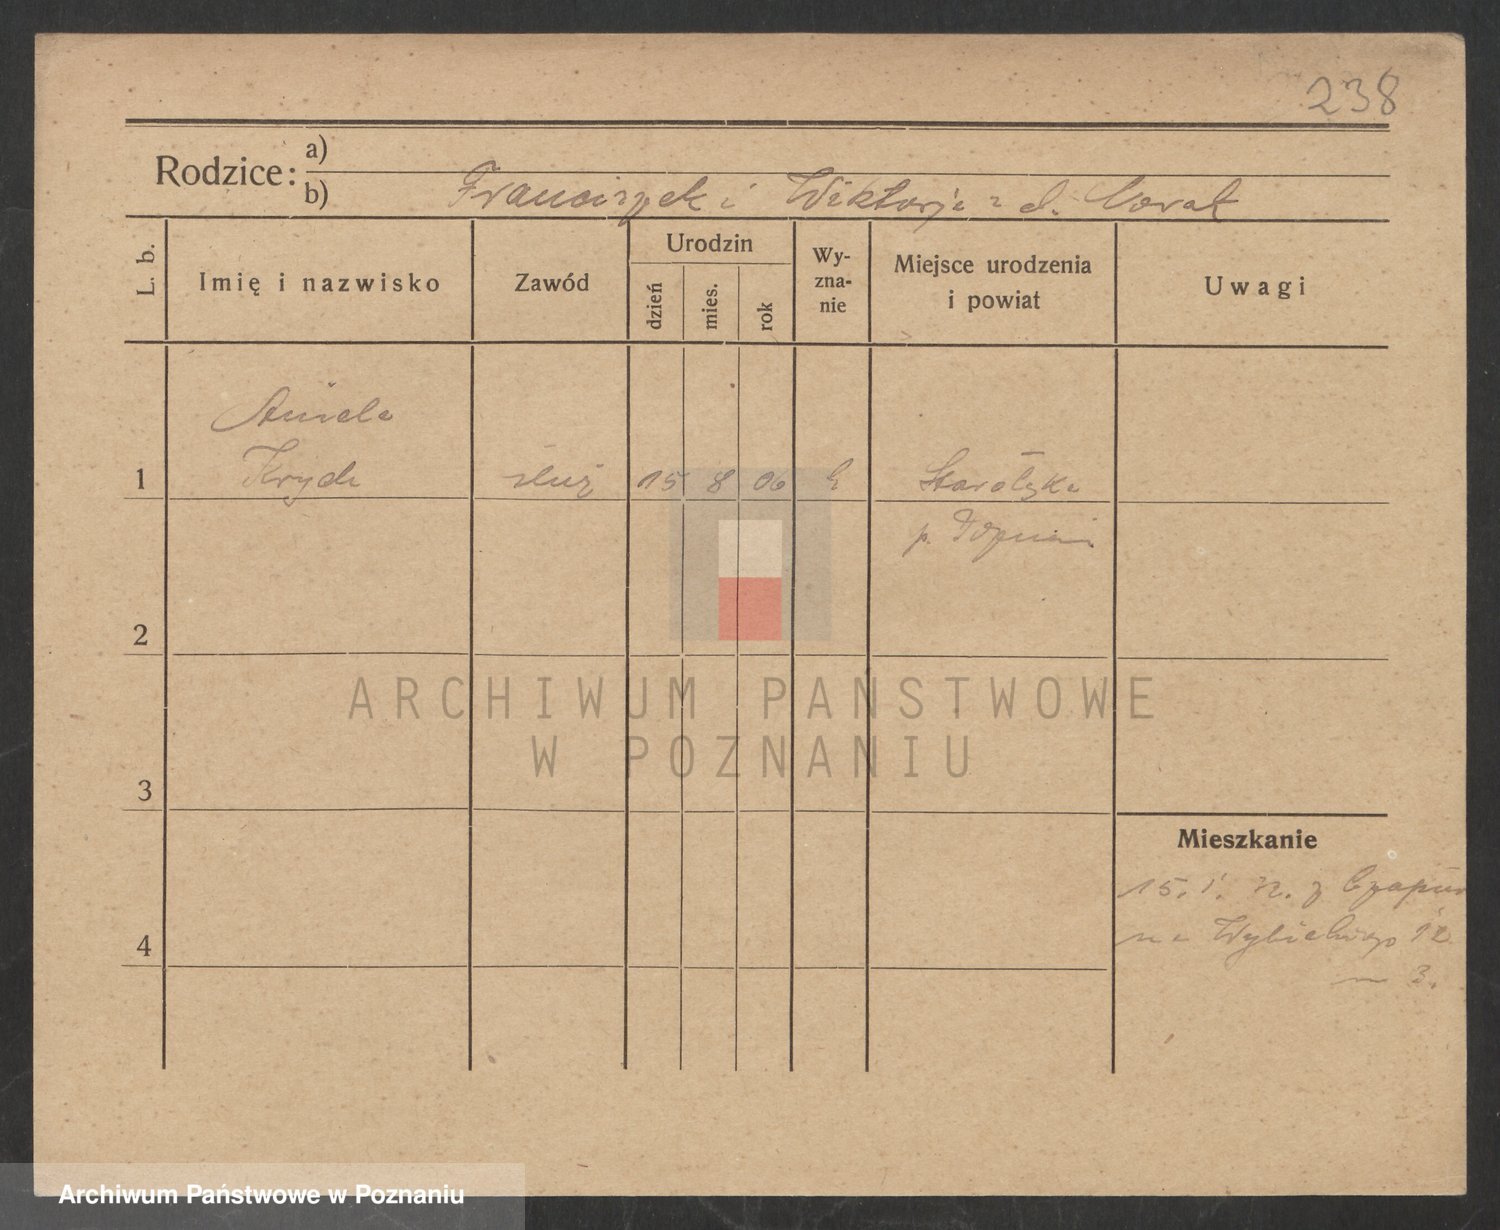 238
Rodzice: a)
b) Franciszek i Wiktorja z d.
L. b. Imię i nazwisko Zawód Urodzin dzień mies. rok Wy-zna-nie Miejsce urodzenia i powiat Uwagi
Aniela
1 Kryda służ 15 8 06 k Starołęka
p. Poznań
2
ARCHIWUM PAŃSTWOWE
W POZNANIU
3
Mieszkanie
15. 1. z
4 na Wybickiego 12
m 3.
Archiwum Państwowe w Poznaniu